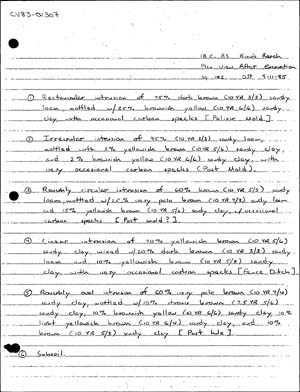 CV83-01307
18 C. BS King's Reach
Plan View After Excavation
Sq 182 DSP 9-11-85
① Rectangular intrusion of 75% dark brown (10 YR 3/3) sandy
loam, mottled w/ 25% brownish yellow (10 YR 6/6) sandy
clay, with occasional carbon specks [Paling Mold].
② Irregular intrusion of 95% (10 YR 3/3) sandy loam,
mottled with 3% yellowish brown (10 YR 5/6) sandy clay,
and 2% brownish yellow (10 YR 6/6) sandy clay, with
very occasional carbon specks (Post Mold).
③ Roughly circular intrusion of 60% brown (10 YR 5/3) sandy
loam mottled w/ 25% very pale brown (10 YR 7/3) sandy loam
and 15% yellowish brown (10 YR 5/6) sandy clay, w/ occasional
carbon specks [Post mold?].
④ Linear intrusion of 70% yellowish brown (10 YR 5/6)
sandy clay, mixed w/ 20% dark brown (10 YR 3/3) sandy
loam and 10% yellowish brown (10 YR 5/8) sandy
clay, with very occasional carbon specks [Fence Ditch].
⑤ Roughly oval intrusion of 60% very pale brown (10 YR 7/4)
sandy clay, mottled w/ 10% strong brown (7.5 YR 5/6)
sandy clay, 10% brownish yellow (10 YR 6/6) sandy clay 10%
light yellowish brown (10 YR 6/4) sandy clay, and 10%
brown (10 YR 5/3) sandy clay [Post hole].
⑥ Subsoil